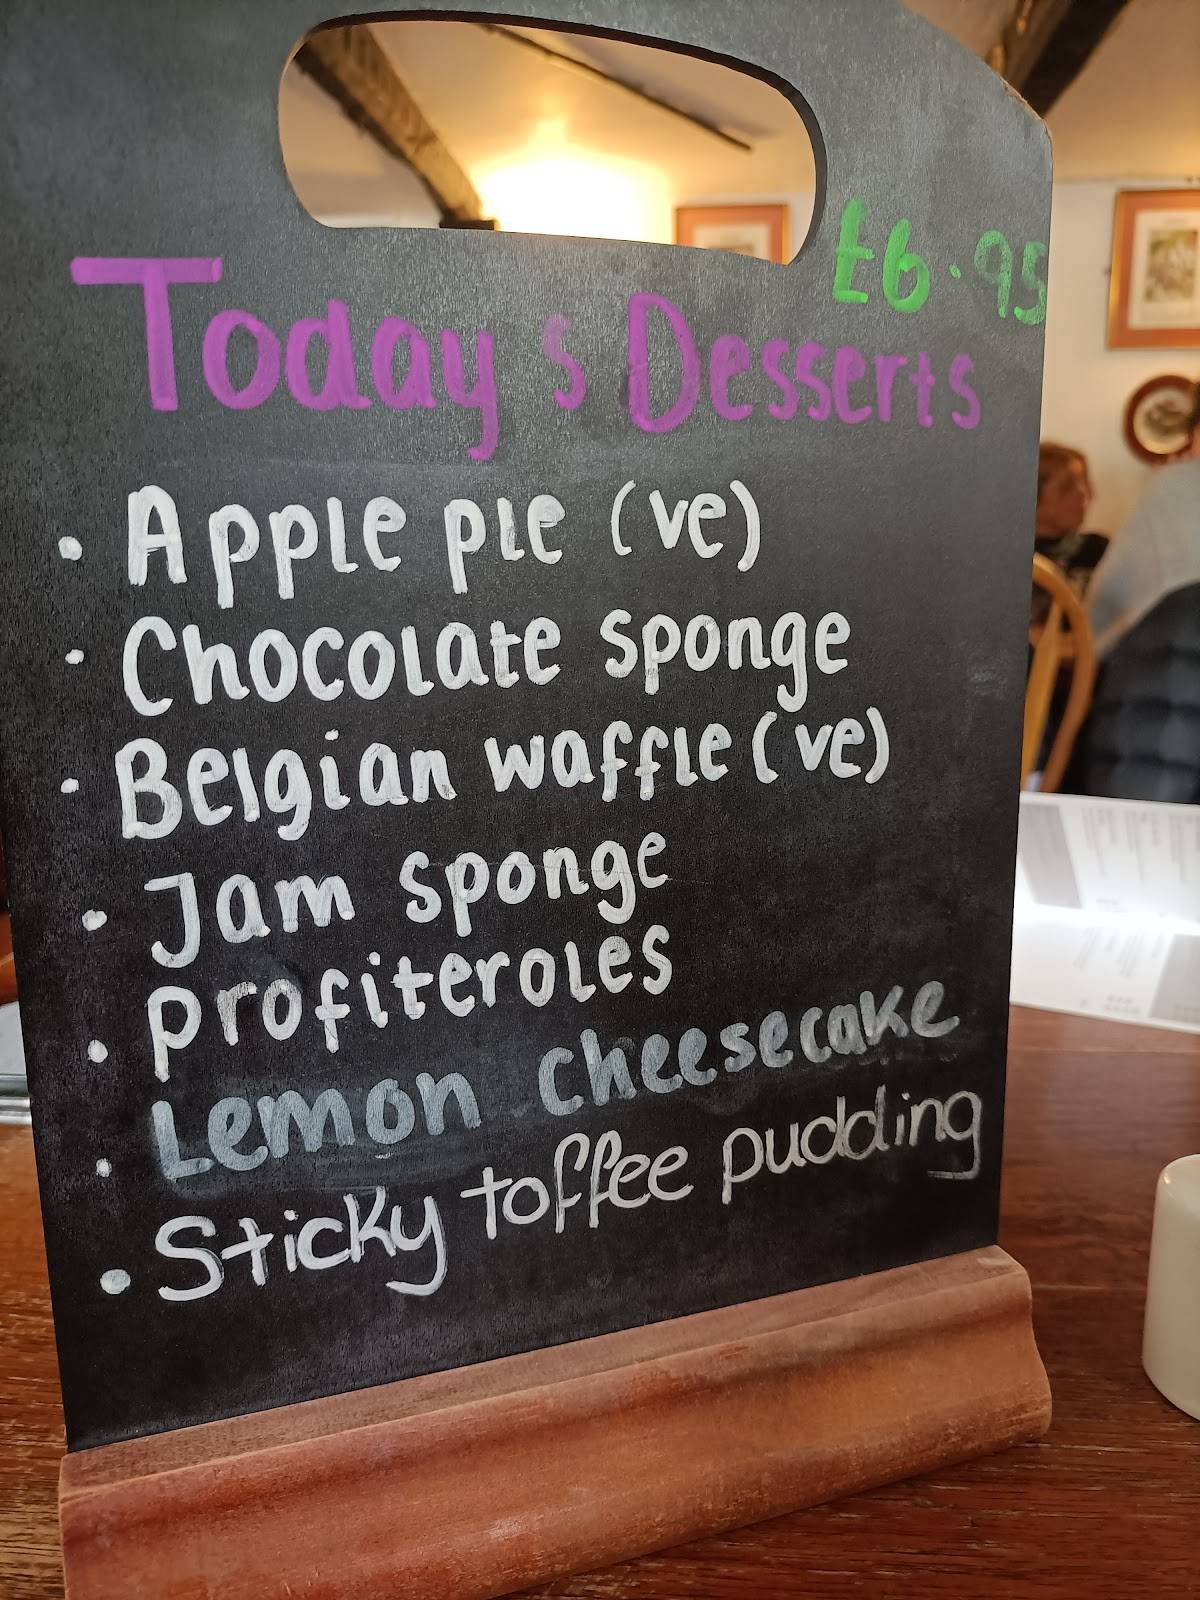 £6.95
Today s Desserts
• Apple pie (ve)
• Chocolate sponge
• Belgian waffle (ve)
• Jam sponge
• profiteroles
• Lemon cheesecake
• Sticky toffee pudding